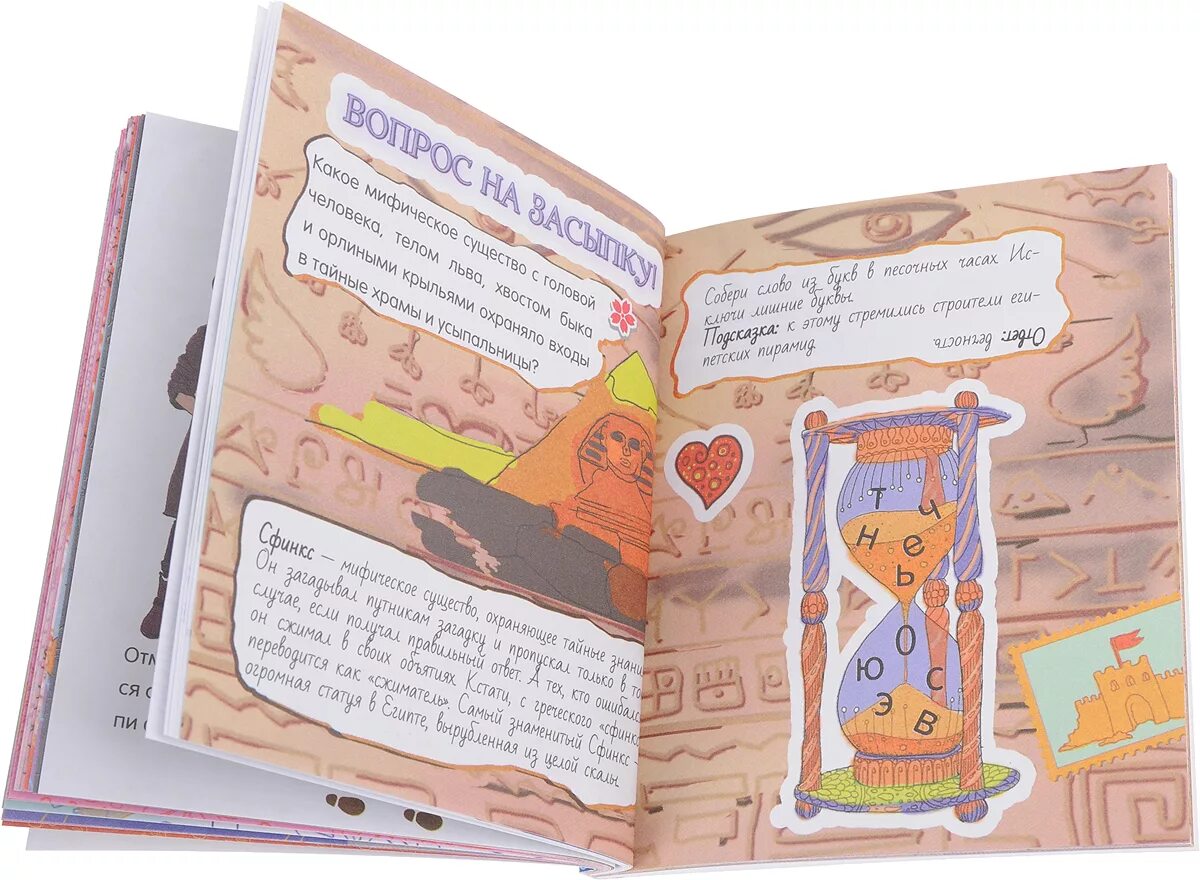 ВОПРОС НА ЗАСЫПКУ!
Какое мифическое существо с головой
человека, телом льва, хвостом быка
и орлиными крыльями охраняло входы
в тайные храмы и усыпальницы?
Сфинкс — мифическое существо, охраняющее тайные знани
Он загадывал путникам загадку и пропускал только в то
случае, если получал правильный ответ. А тех, кто ошибалс
он сжимал в своих объятиях Кстати, с греческого «сфинкс
переводится как «сжиматель». Самый знаменитый Сфинкс –
огромная статуя в Египте, вырубленная из целой скалы
Отм
ся с
пи с
Собери слово из букв в песочных часах Ис-
ключи лишние буквы.
Подсказка: к этому стремились строители еги-
петских пирамид
Ответ: вечность
т ч
н е
ь
о
ю с
э в